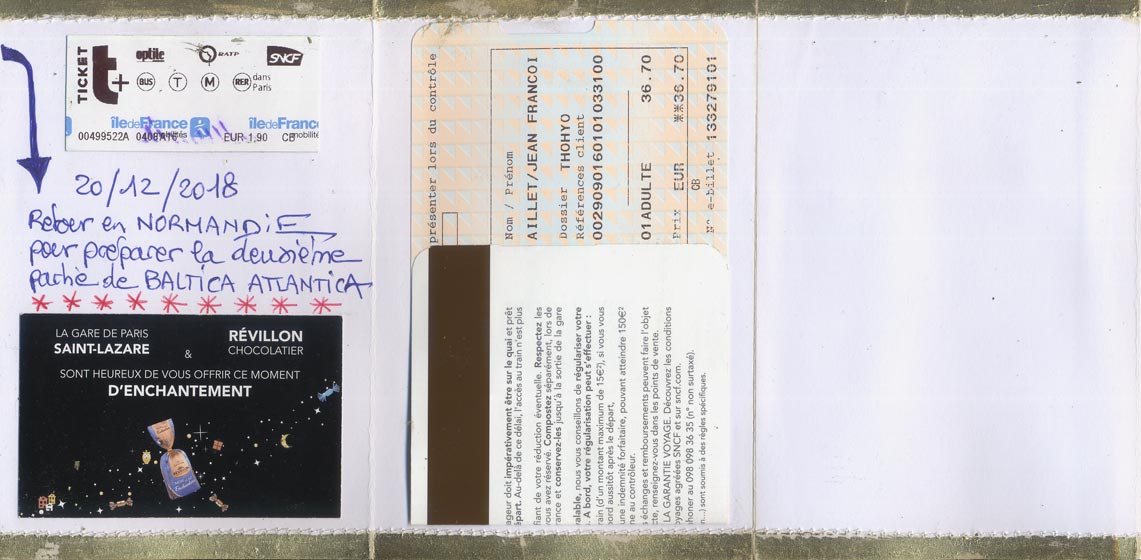 TICKET t+
optile RATP SNCF
BUS T M RER dans Paris
île de France île de Franc
mobilités mobilité
00499522A 0408A16 EUR 1,90 CB
20/12/2018
Retour en NORMANDIE
pour préparer la deuxième
partie de BALTICA ATLANTICA
LA GARE DE PARIS
SAINT-LAZARE
&
RÉVILLON
CHOCOLATIER
SONT HEUREUX DE VOUS OFFRIR CE MOMENT
D'ENCHANTEMENT
présenter lors du contrôle
Nom / Prénom
AILLET/JEAN FRANCOI
Dossier THOHYO
Références client
0029090160101033100
01ADULTE 36.70
Prix EUR **36.70
CB
N° e-billet 133279101
ageur doit impérativement être sur le quai et prêt
épart. Au-delà de ce délai, l'accès au train n'est plus
fiant de votre réduction éventuelle. Respectez les
vous avez réservé. Compostez séparément, lors de
rance et conservez-les jusqu'à la sortie de la gare
valable, nous vous conseillons de régulariser votre
. A bord, votre régularisation peut s'effectuer :
rain (d'un montant maximum de 15€²), si vous vous
bord aussitôt après le départ,
une indemnité forfaitaire, pouvant atteindre 150€²
ne au contrôleur.
s échanges et remboursements peuvent faire l'objet
cte, renseignez-vous dans les points de vente.
LA GARANTIE VOYAGE. Découvrez les conditions
yages agréées SNCF et sur sncf.com.
honer au 098 098 36 35 (n° non surtaxé).
...) sont soumis à des règles spécifiques.